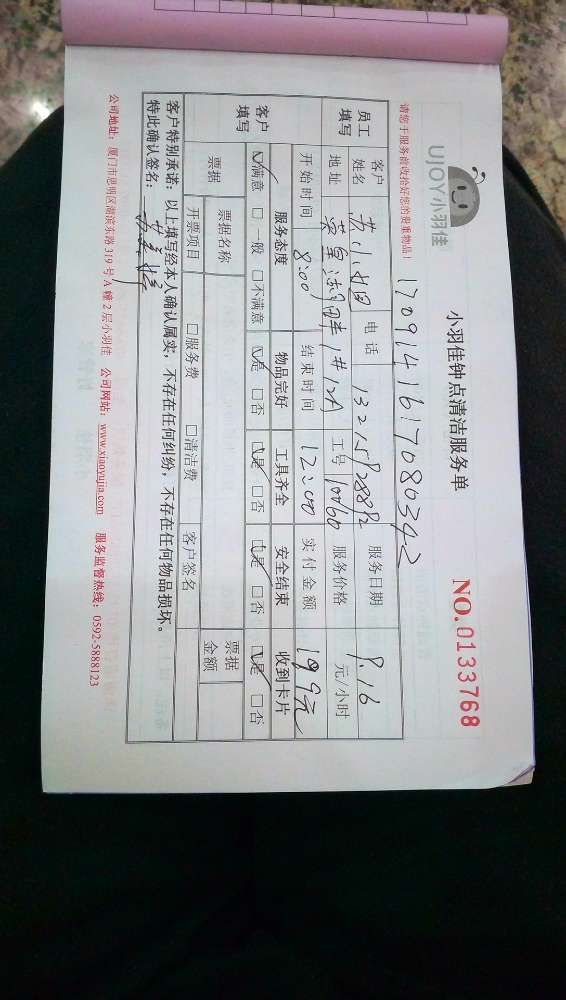 UJOY小羽佳
小羽佳钟点清洁服务单
NO.0133768
请您于服务前收拾好您的贵重物品!
1709141617080342
员工填写
客户姓名 苏小姐 电话 服务日期 9.16
地址 1#12A 工号 10060 服务价格 元/小时
开始时间 8:00 结束时间 12:00 实付金额 199元
客户填写
服务态度 物品完好 工具齐全 安全结束 收到卡片
☑满意 □一般 □不满意 ☑是 □否 ☑是 □否 ☑是 □否 ☑是 □否
票据 票据名称 票据金额
开票项目 □服务费 □清洁费 客户签名
客户特别承诺:以上填写经本人确认属实,不存在任何纠纷,不存在任何物品损坏。
特此确认签名:
公司地址:厦门市思明区湖滨东路319号A幢2层小羽佳 公司网站:www.xiaoyujia.com 服务监督热线:0592-5888123